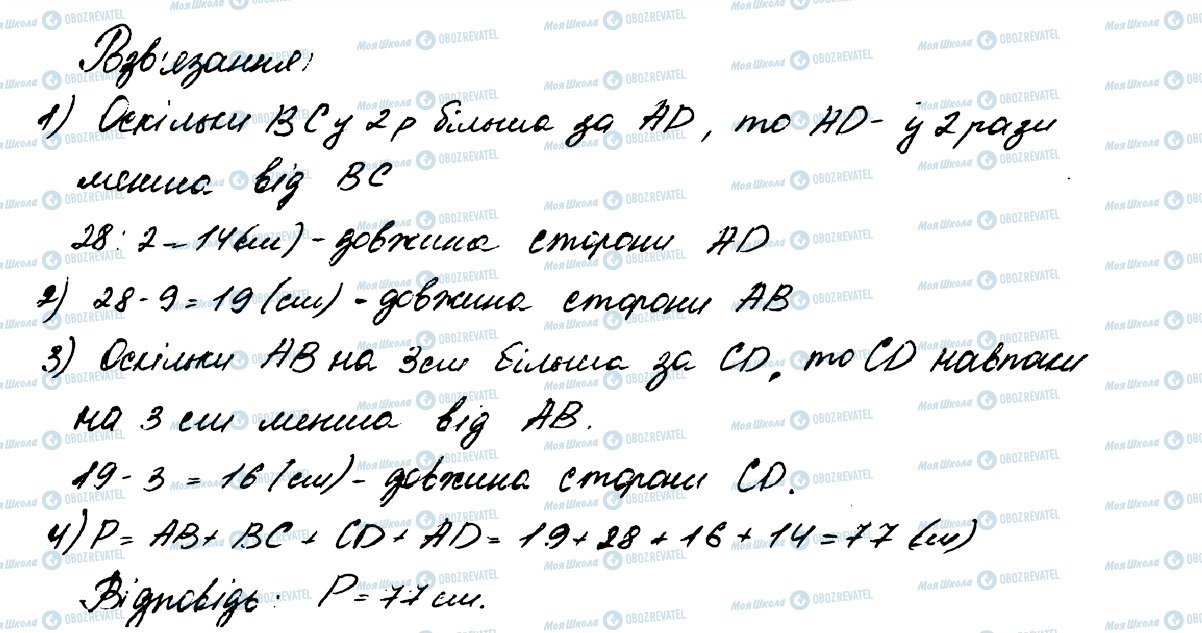 Розв'язання:
1) Оскільки BC у 2 р більша за AD, то AD - у 2 рази
менша від BC
28 : 2 = 14 (см) - довжина сторони AD
2) 28 - 9 = 19 (см) - довжина сторони AB
3) Оскільки AB на 3 см більша за CD, то CD навпаки
на 3 см менша від AB.
19 - 3 = 16 (см) - довжина сторони CD.
4) P = AB + BC + CD + AD = 19 + 28 + 16 + 14 = 77 (см)
Відповідь: P = 77 см.
Моя Школа OBOZREVATEL